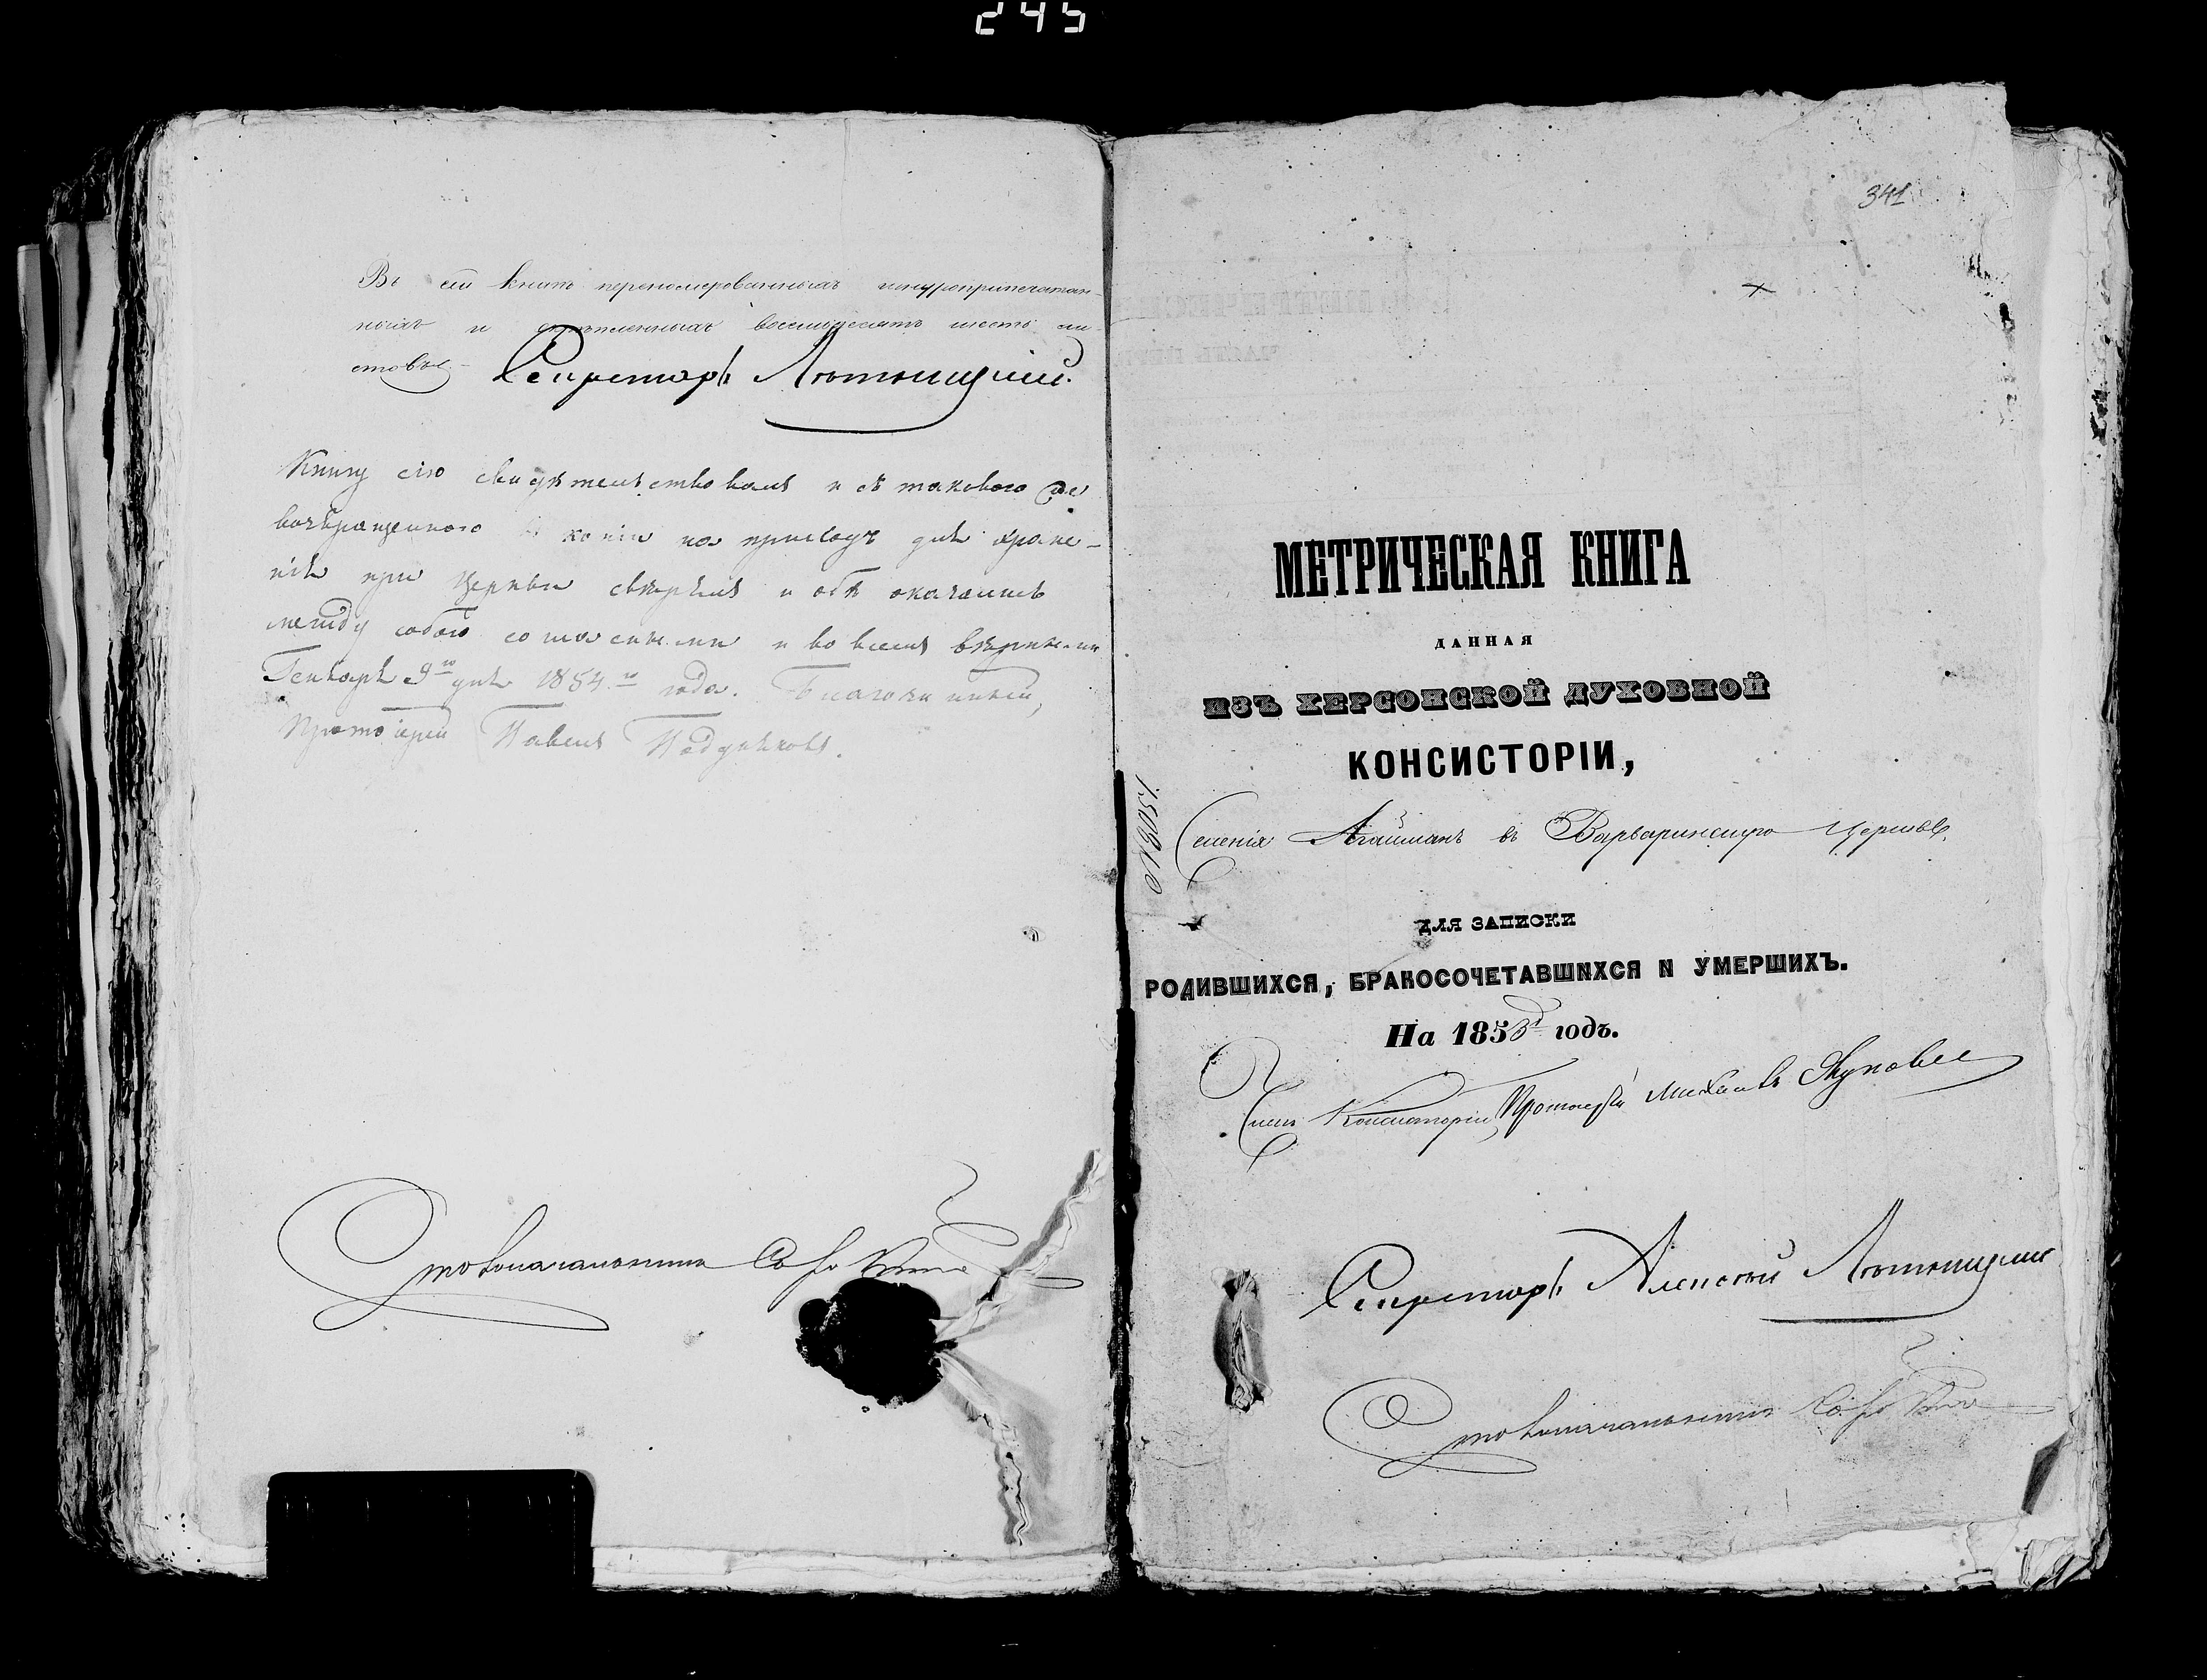 245
Въ сей книгѣ перенумерованныхъ шнуроприпечатан-
ныхъ и скрѣпленныхъ восемьдесятъ шесть ли-
стовъ.
Секретарь Лотоцкій.
Книгу сію свидѣтельствовалъ и съ таковою
возвращенною копіи на приходъ для хране-
нія при церкви свѣрялъ и обѣ оказались
между собою согласными и во всемъ вѣрными
Генваря 9го дня 1854го года. Благочинный,
Протоіерей Павелъ
Столоначальникъ
341
МЕТРИЧЕСКАЯ КНИГА
ДАННАЯ
ИЗЪ ХЕРСОНСКОЙ ДУХОВНОЙ
КОНСИСТОРІИ,
Селенія Агайманъ въ Варваринскую церковь
№ 3051.
ДЛЯ ЗАПИСКИ
РОДИВШИХСЯ, БРАКОСОЧЕТАВШИХСЯ И УМЕРШИХЪ.
На 1853й годъ.
Членъ Консисторіи, Протоіерей Михаилъ
Секретарь Алексѣй Лотоцкій
Столоначальникъ